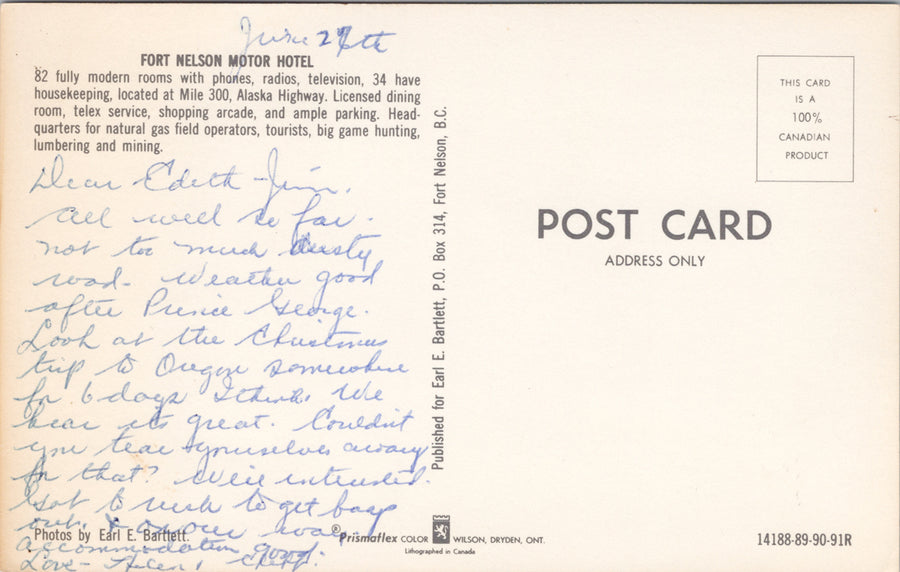 June 27th
FORT NELSON MOTOR HOTEL
82 fully modern rooms with phones, radios, television, 34 have
housekeeping, located at Mile 300, Alaska Highway. Licensed dining
room, telex service, shopping arcade, and ample parking. Head-
quarters for natural gas field operators, tourists, big game hunting,
lumbering and mining.
Dear Edith - Jim,
all well so far.
not too much dusty
road. Weather good
after Prince George.
Look at the Christmas
trip to Oregon somewhere
for 6 days I think. We
hear its great. Couldn't
you tear yourselves away
for that? We're interested.
Got to rush to get bags
out, & on our way
accommodation good.
Love -
Photos by Earl E. Bartlett.
Published for Earl E. Bartlett, P.O. Box 314, Fort Nelson, B.C.
®Prismaflex COLOR WILSON, DRYDEN, ONT.
Lithographed in Canada
THIS CARD
IS A
100%
CANADIAN
PRODUCT
POST CARD
ADDRESS ONLY
14188-89-90-91R